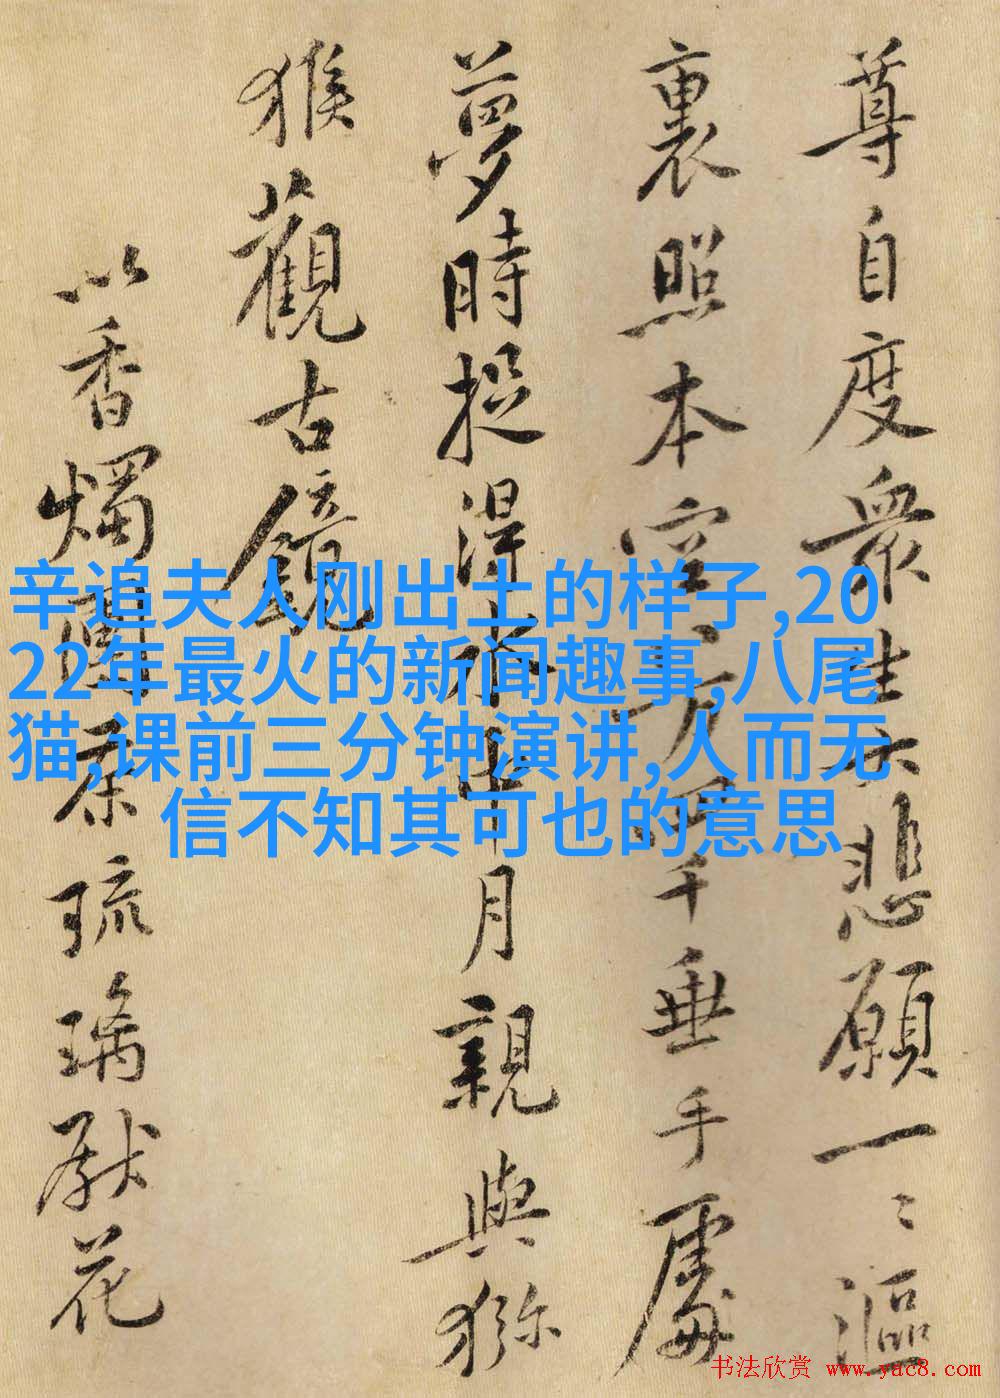 尊自度衆生大悲願一〻漚
裏照本空八万四千垂手處
夢時捉得水中月親與獼
猴觀古鏡
以香燭團茶琉璃獻花
辛追夫人刚出土的样子,20
22年最火的新闻趣事,八尾
猫,课前三分钟演讲,人而无
信不知其可也的意思
书法欣赏 www.yac8.com